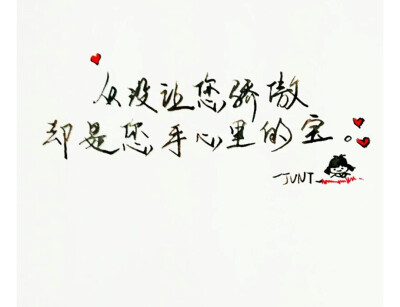 从没让您骄傲
却是您手心里的宝。
JUNT